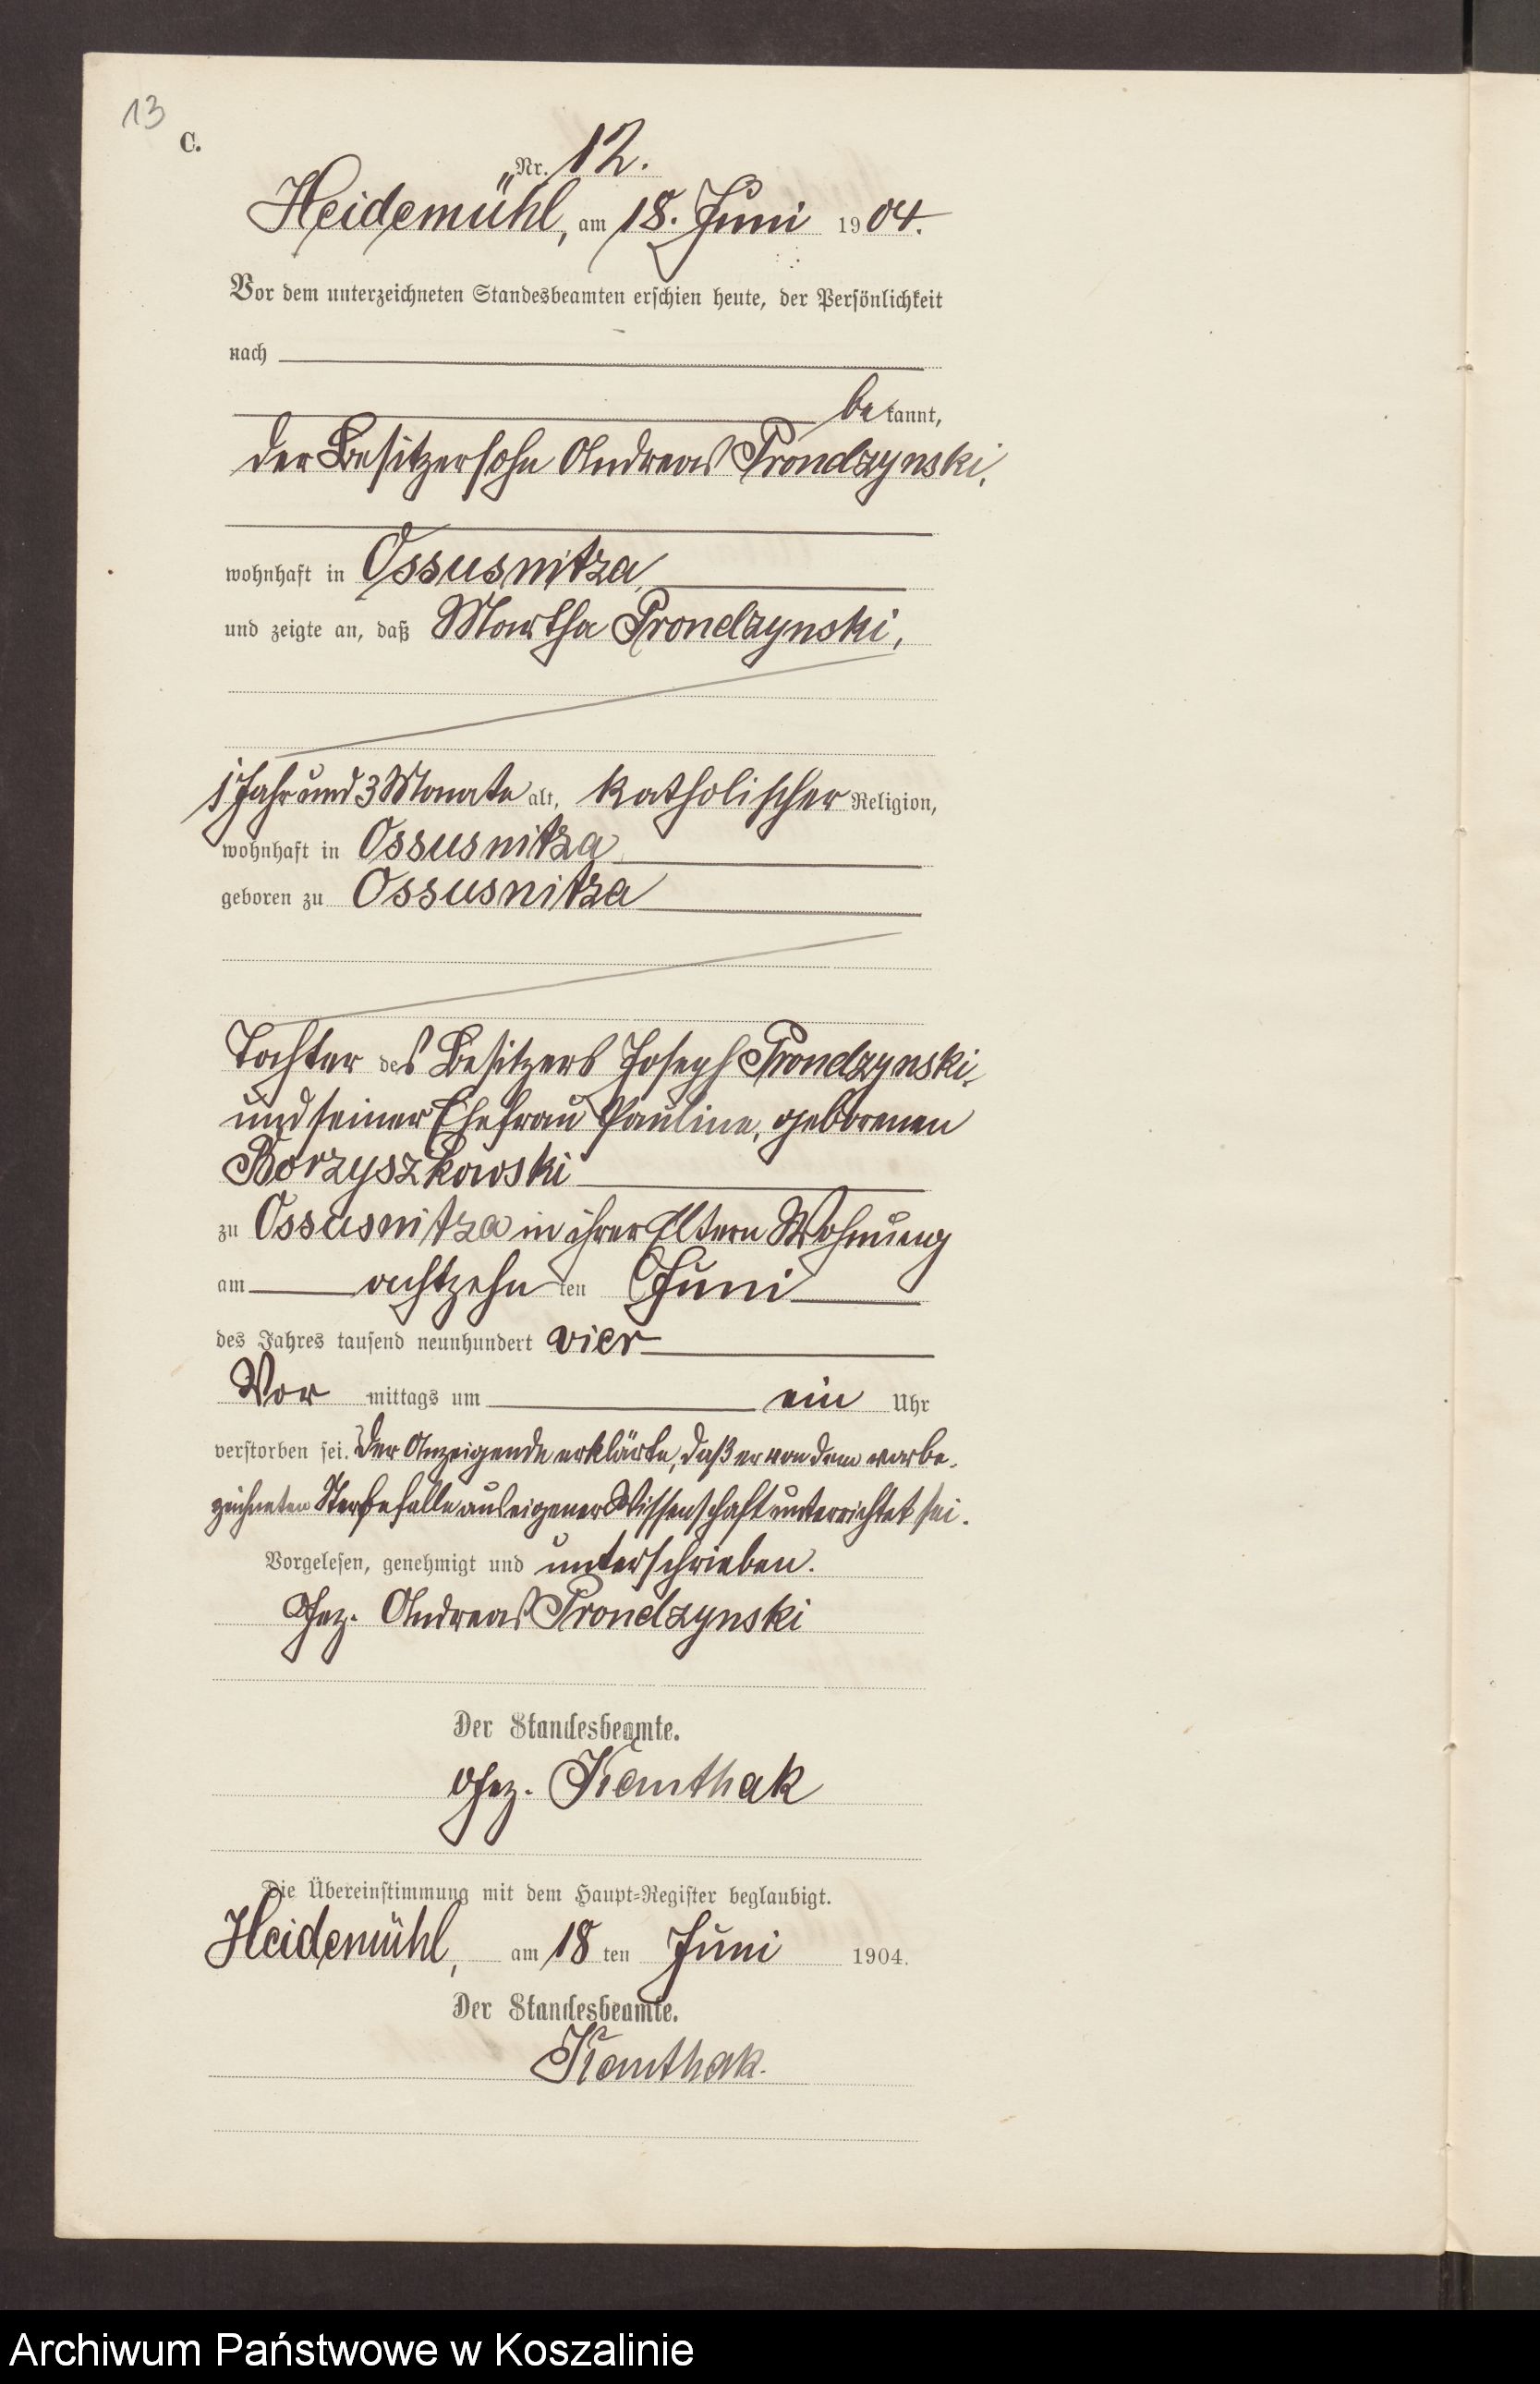 13
C.
Nr. 12.
Heidemühl, am 18. Juni 1904.
Vor dem unterzeichneten Standesbeamten erschien heute, der Persönlichkeit
nach
bekannt,
der Besitzersohn Andreas Prondzynski,
wohnhaft in Ossusnitza,
und zeigte an, daß Martha Prondzynski,
1 Jahr und 3 Monate alt, katholischer Religion,
wohnhaft in Ossusnitza
geboren zu Ossusnitza
Tochter des Besitzers Joseph Prondzynski
und seiner Ehefrau Pauline, geborenen
Borzyszkowski
zu Ossusnitza in ihrer Eltern Wohnung
am achtzehn ten Juni
des Jahres tausend neunhundert vier
Vor mittags um ein Uhr
verstorben sei. Der Anzeigende erklärte, daß er von dem vorbe-
zeichneten Sterbefalle aus eigener Wissenschaft unterrichtet sei.
Vorgelesen, genehmigt und unterschrieben.
Gez. Andreas Prondzynski
Der Standesbeamte.
Gez. Kemthak
Die Übereinstimmung mit dem Haupt-Register beglaubigt.
Heidemühl, am 18 ten Juni 1904.
Der Standesbeamte.
Kemthak.
Archiwum Państwowe w Koszalinie